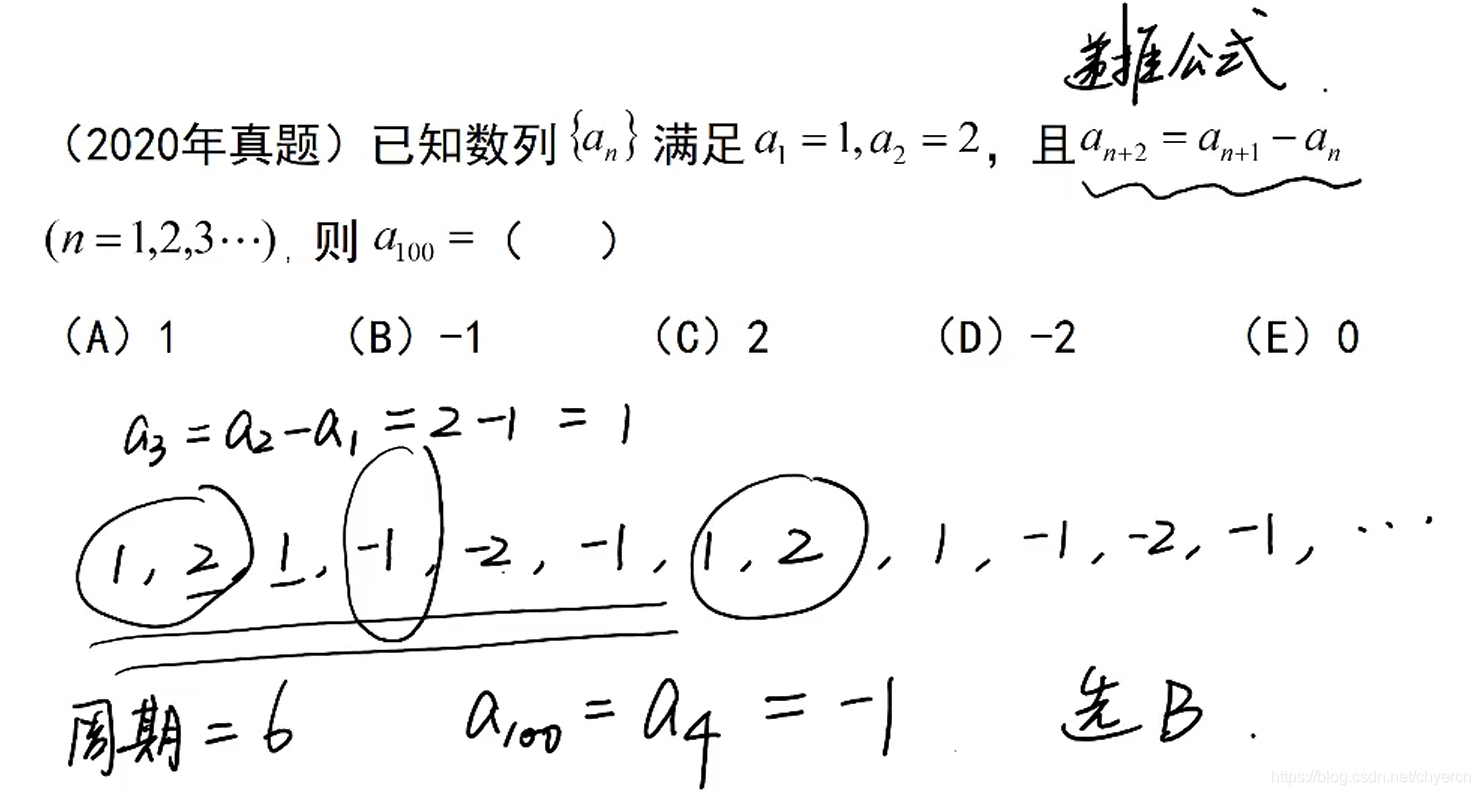 递推公式.
（2020年真题）已知数列{aₙ}满足a₁=1,a₂=2，且aₙ₊₂=aₙ₊₁-aₙ
(n=1,2,3⋯), 则a₁₀₀=（ ）
（A）1 （B）-1 （C）2 （D）-2 （E）0
a₃=a₂-a₁=2-1=1
1, 2, 1, -1, -2, -1, 1, 2, 1, -1, -2, -1, ⋯
周期=6 a₁₀₀=a₄=-1 选B.
https://blog.csdn.net/chyercn